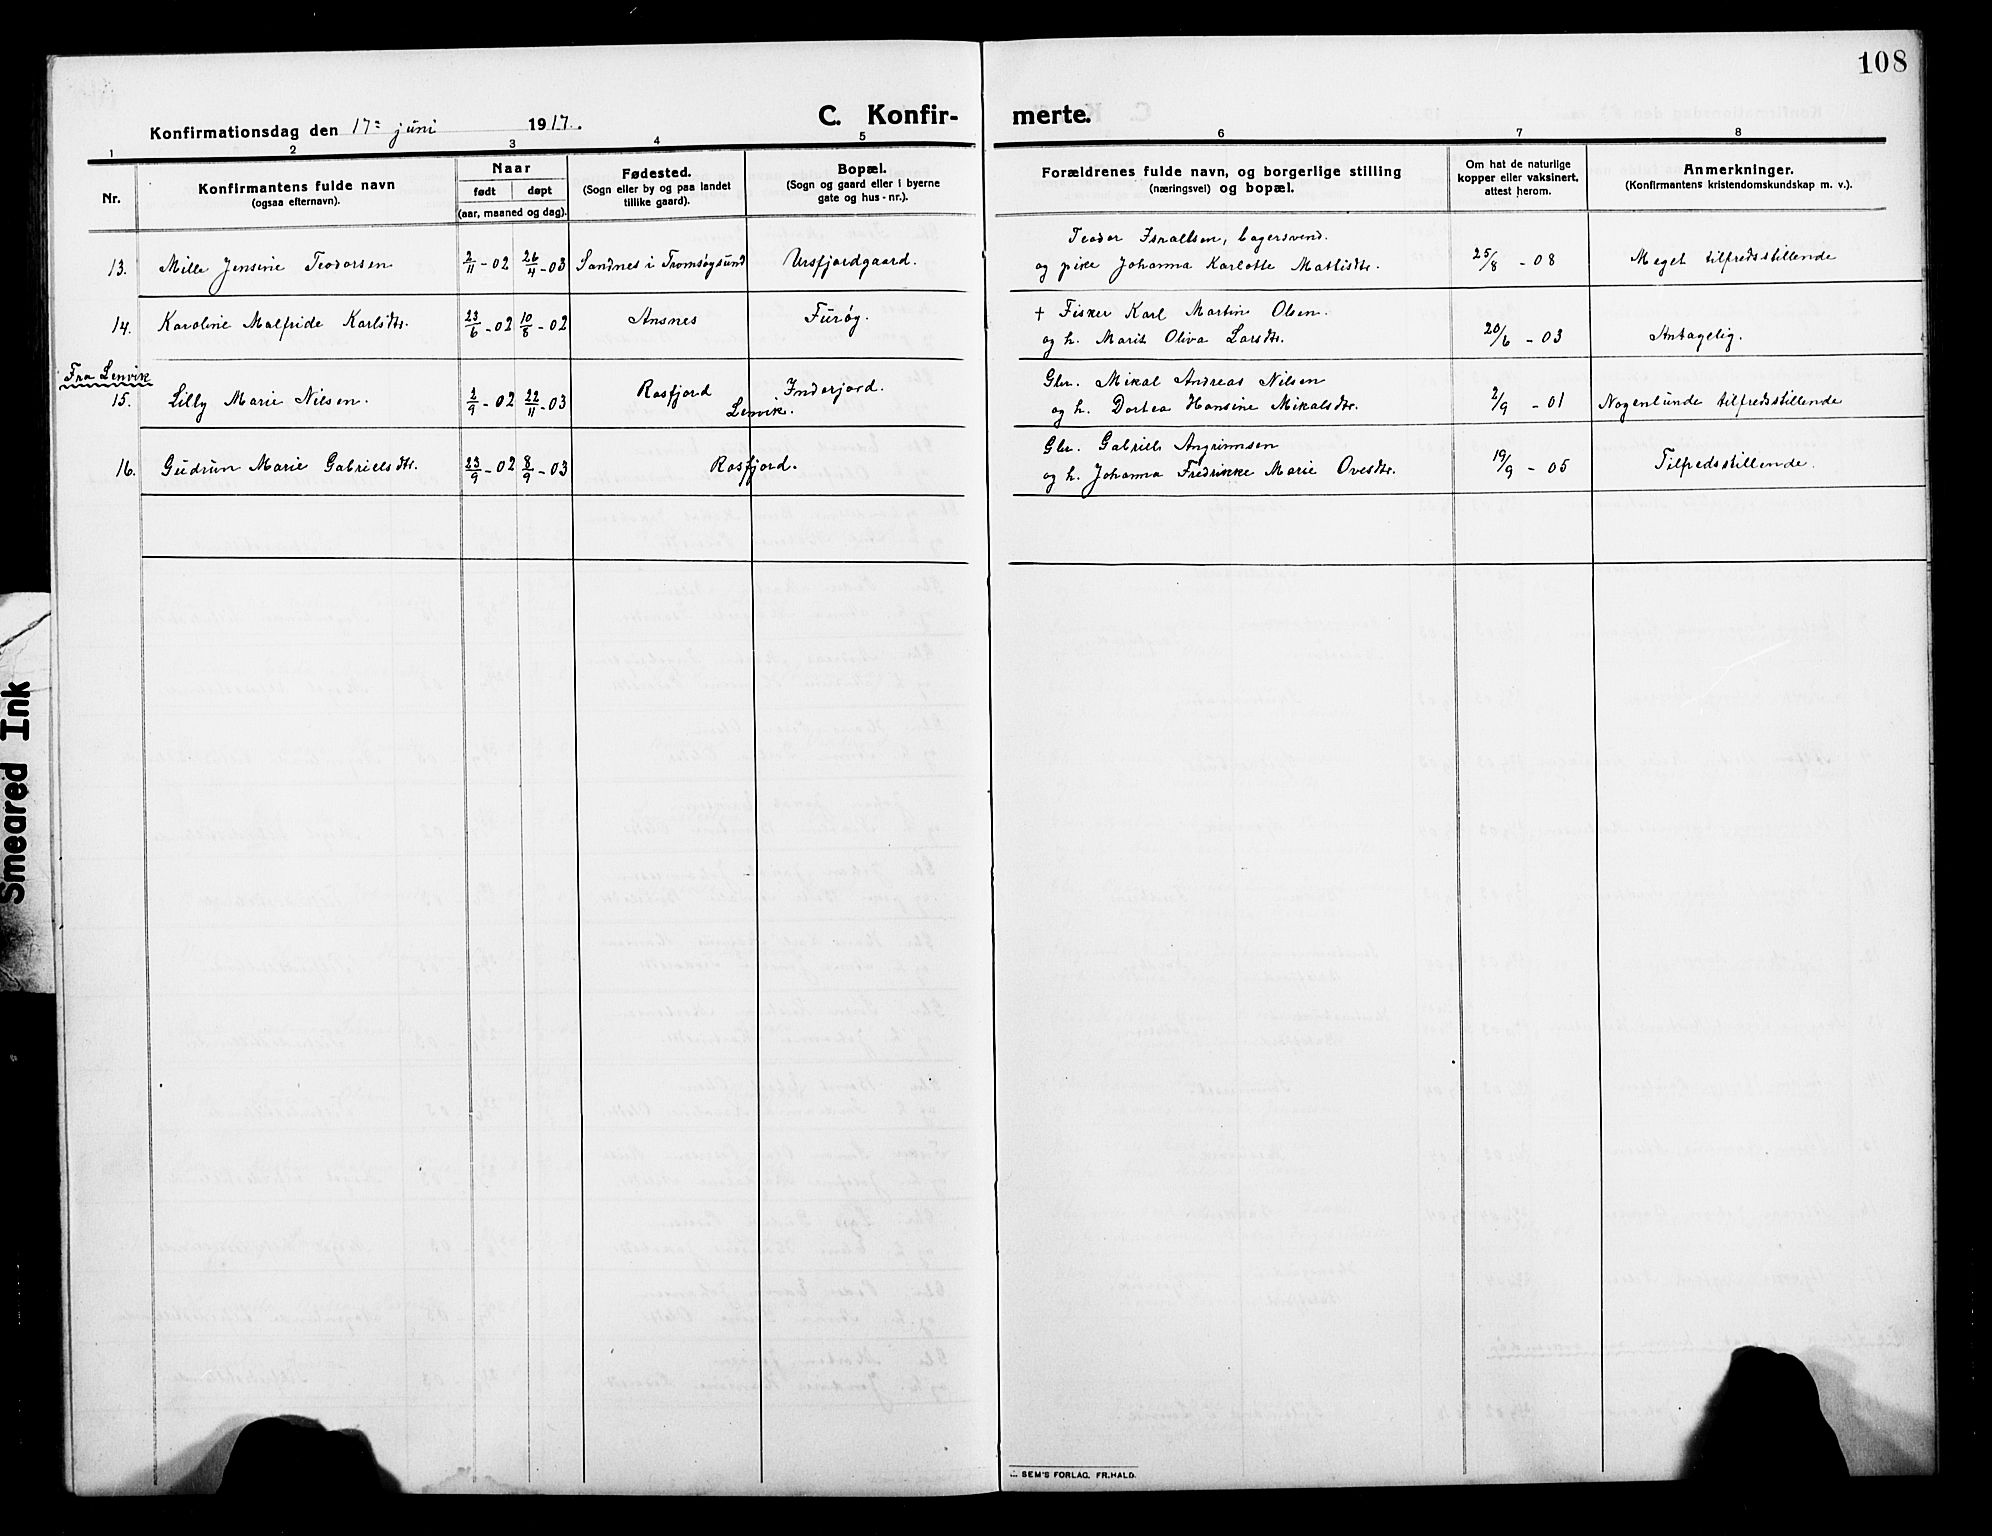 108
C. Konfir-merte.
Konfirmationsdag den 17de juni 1917.
1 2 3 4 5 6 7 8
Nr.
Konfirmantens fulde navn
(ogsaa efternavn).
Naar
født døpt
(aar, maaned og dag).
Fødested.
(Sogn eller by og paa landet
tillike gaard).
Bopæl.
(Sogn og gaard eller i byerne
gate og hus-nr.).
Forældrenes fulde navn, og borgerlige stilling
(næringsvei) og bopæl.
Om hat de naturlige
kopper eller vaksinert,
attest herom.
Anmerkninger.
(Konfirmantens kristendomskundskap m. v.).
Teodor Israelsen, bagersvend.
13. Milla Jensine Teodorsen 2/11-02 26/4-03 Sandnes i Tromsøysund Ursfjordgaard. og pike Johanna Karlotte Mattisdtr. 25/8 - 08 Meget tilfredsstillende
† Fisker Karl Martin Olsen.
14. Karoline Malfride Karlsdtr. 23/6-02 10/8-02 Ansnes Furøy. og h. Marit Oliva Larsdtr. 20/6 - 03 Antagelig.
Fra Lenvik
Gbr. Mikal Andreas Nilsen
15. Lilly Marie Nilsen. 2/9-02 22/11-03 Rosfjord Inderjord.
Lenvik. og h. Dortea Hansine Mikalsdtr. 2/9 - 01 Nogenlunde tilfredsstillende
Gbr. Gabriels Angrimsen
16. Gudrun Marie Gabrielsdtr. 23/9-02 8/9-03 Rosfjord. og h. Johanna Fredrikke Marie Ovesdtr. 19/9 - 05 Tilfredsstillende.
SEM'S FORLAG, FR. HALD.
Smeared Ink